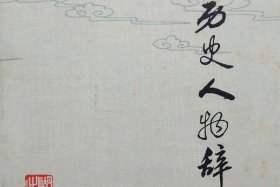 历史人物辞